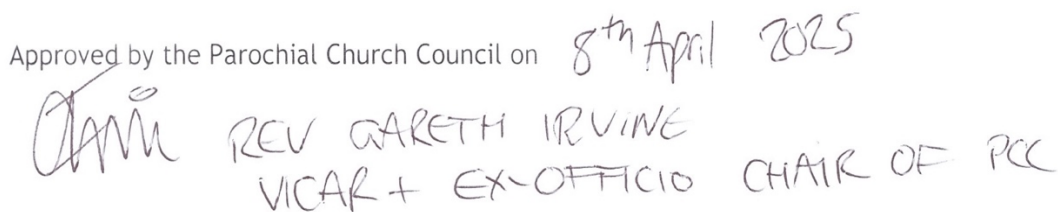 Approved by the Parochial Church Council on 8th April 2025
REV GARETH IRVINE
VICAR + EX-OFFICIO CHAIR OF PCC